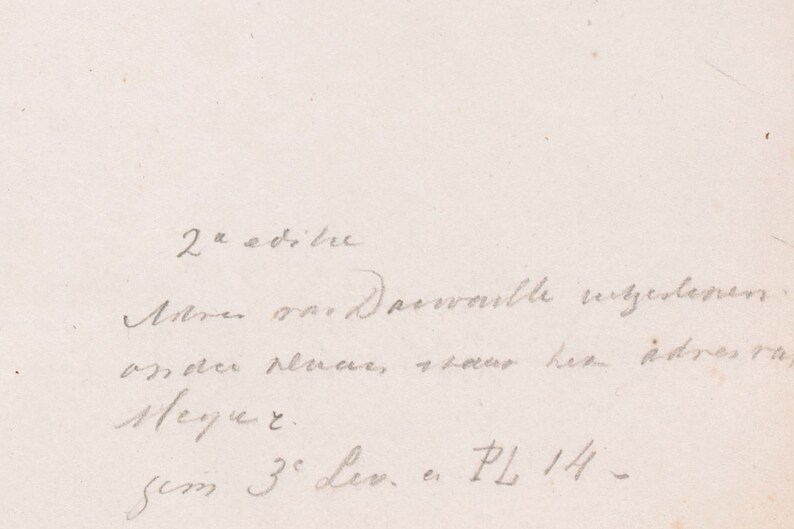 2e editie
Adres van Daiwaille uitgeslepen
onder staat het adres van
Meyer.
gem 3e Lev. a PL 14 -